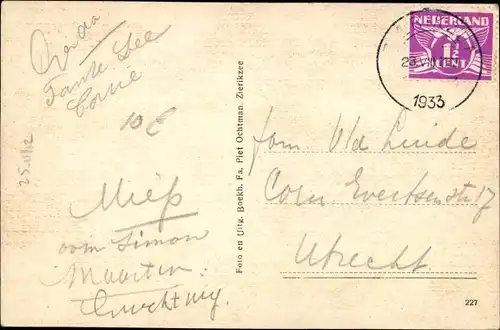 Tante
Corrie
10 E
Miep
van Simon
Maarten.
Foto en Uitg. Boekh. Fa. Piet Ochtman. Zierikzee
NEDERLAND
1½
CENT
1933
Fam. v/d Linde
Corn Evertsenstr 17
Utrecht
227